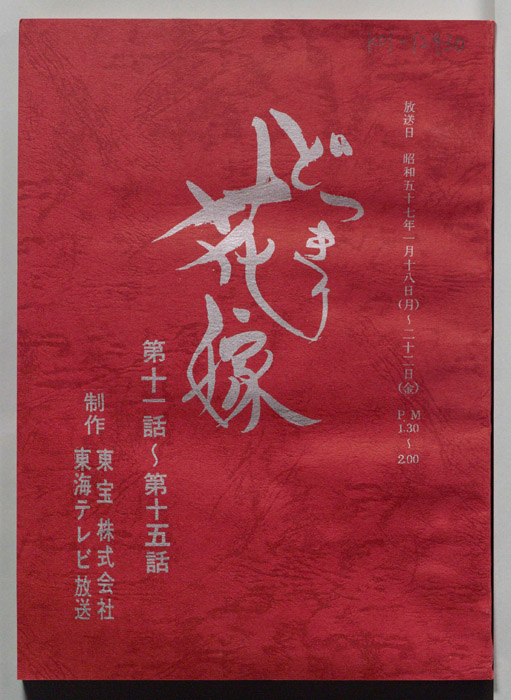 放送日 昭和五十七年一月十八日(月)～二十二日(金)
PM
1.30
～
2.00
どっきり
花嫁
第十一話～第十五話
制作 東宝株式会社
東海テレビ放送